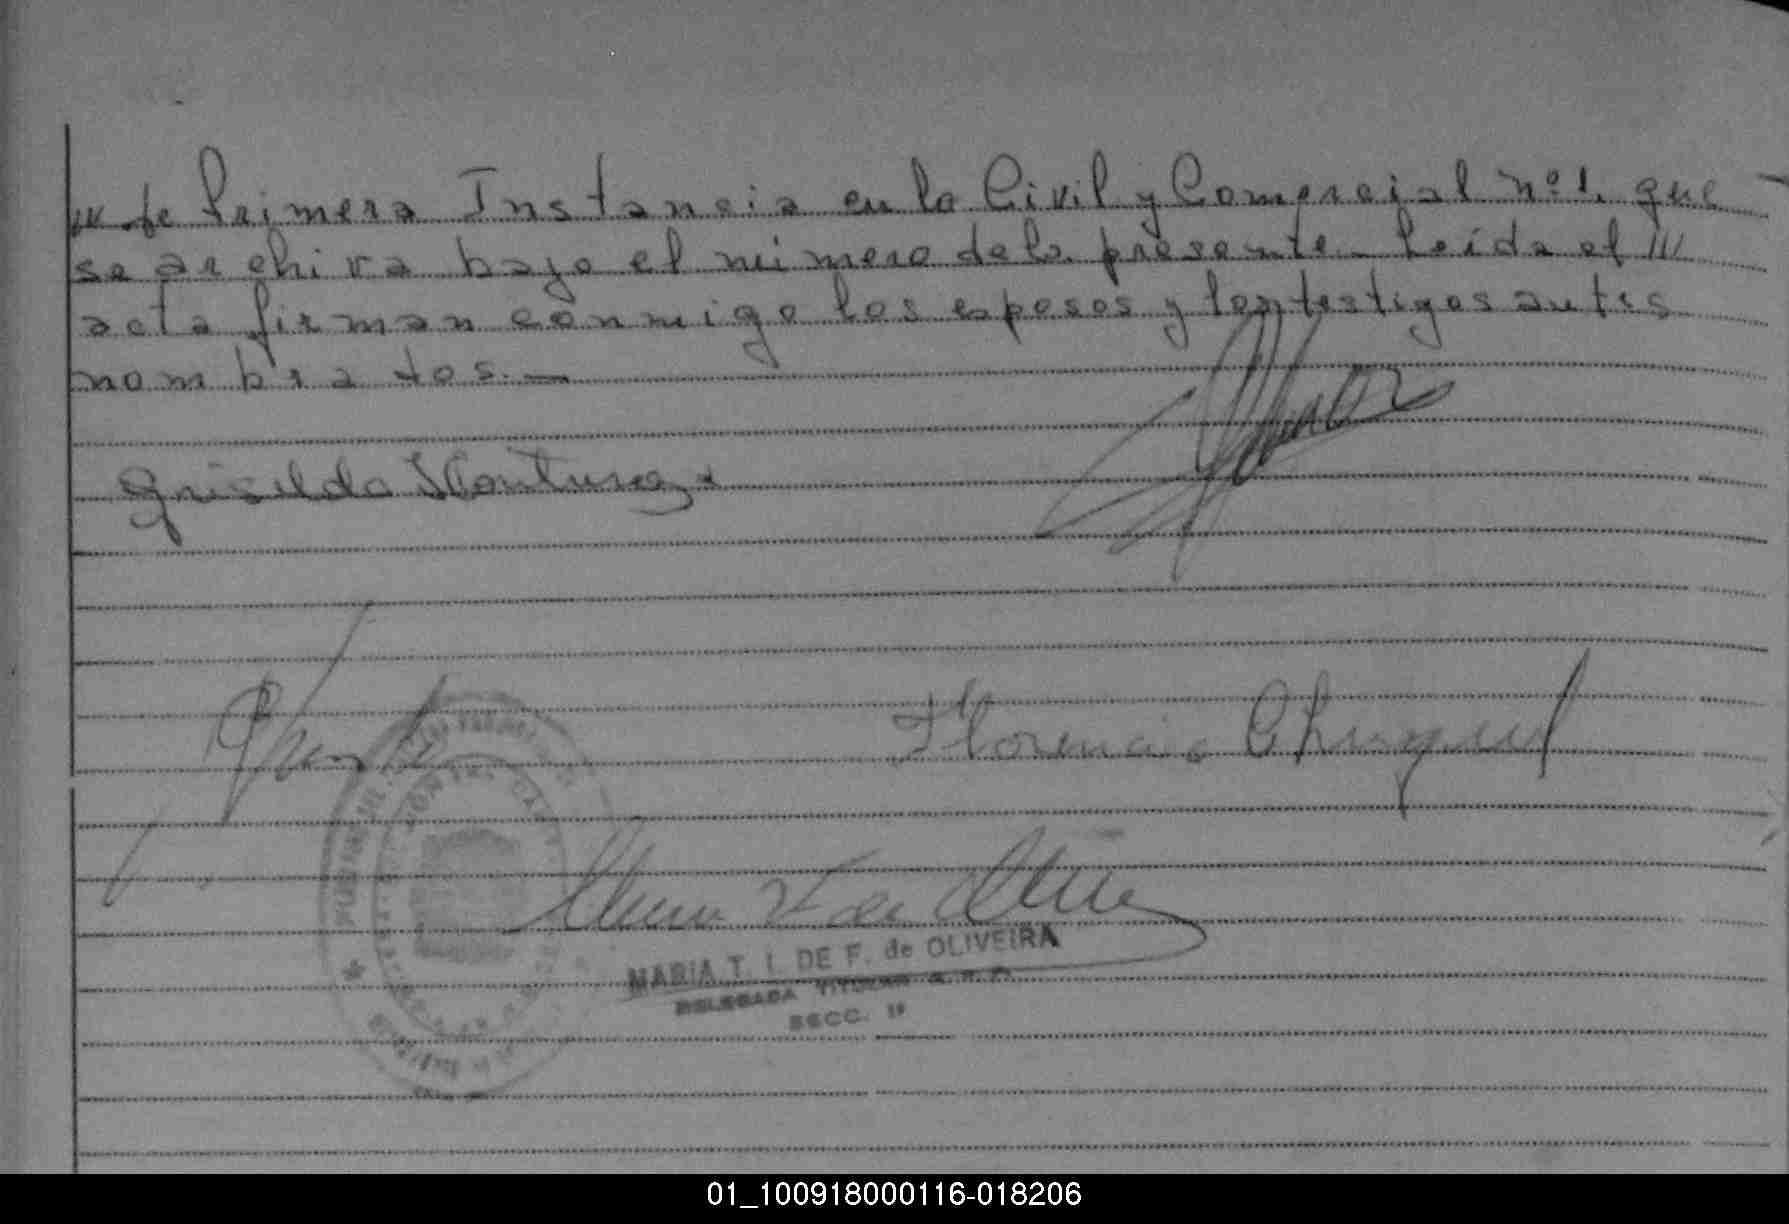 /// de Primera Instancia en lo Civil y Comercial nº 1, que
se archiva bajo el número dela presente - Leída el ///
acta firman conmigo los esposos y los testigos antes
nombrados. —
Griselda
Florencio
MARIA T. I. DE F. de OLIVEIRA
DELEGADA TITULAR
SECC. 1ª
01_100918000116-018206